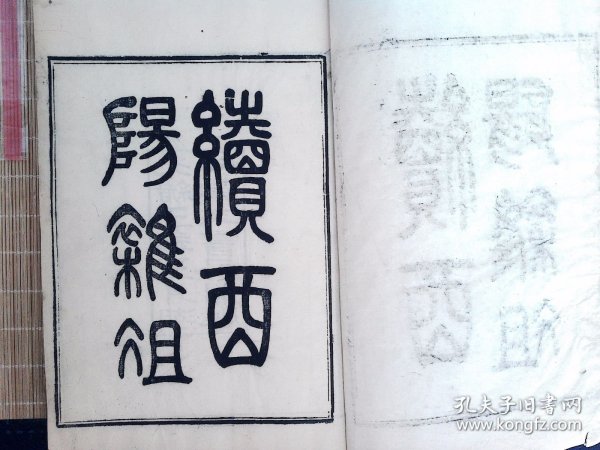 續酉
陽雜俎
孔夫子旧书网
www.kongfz.com